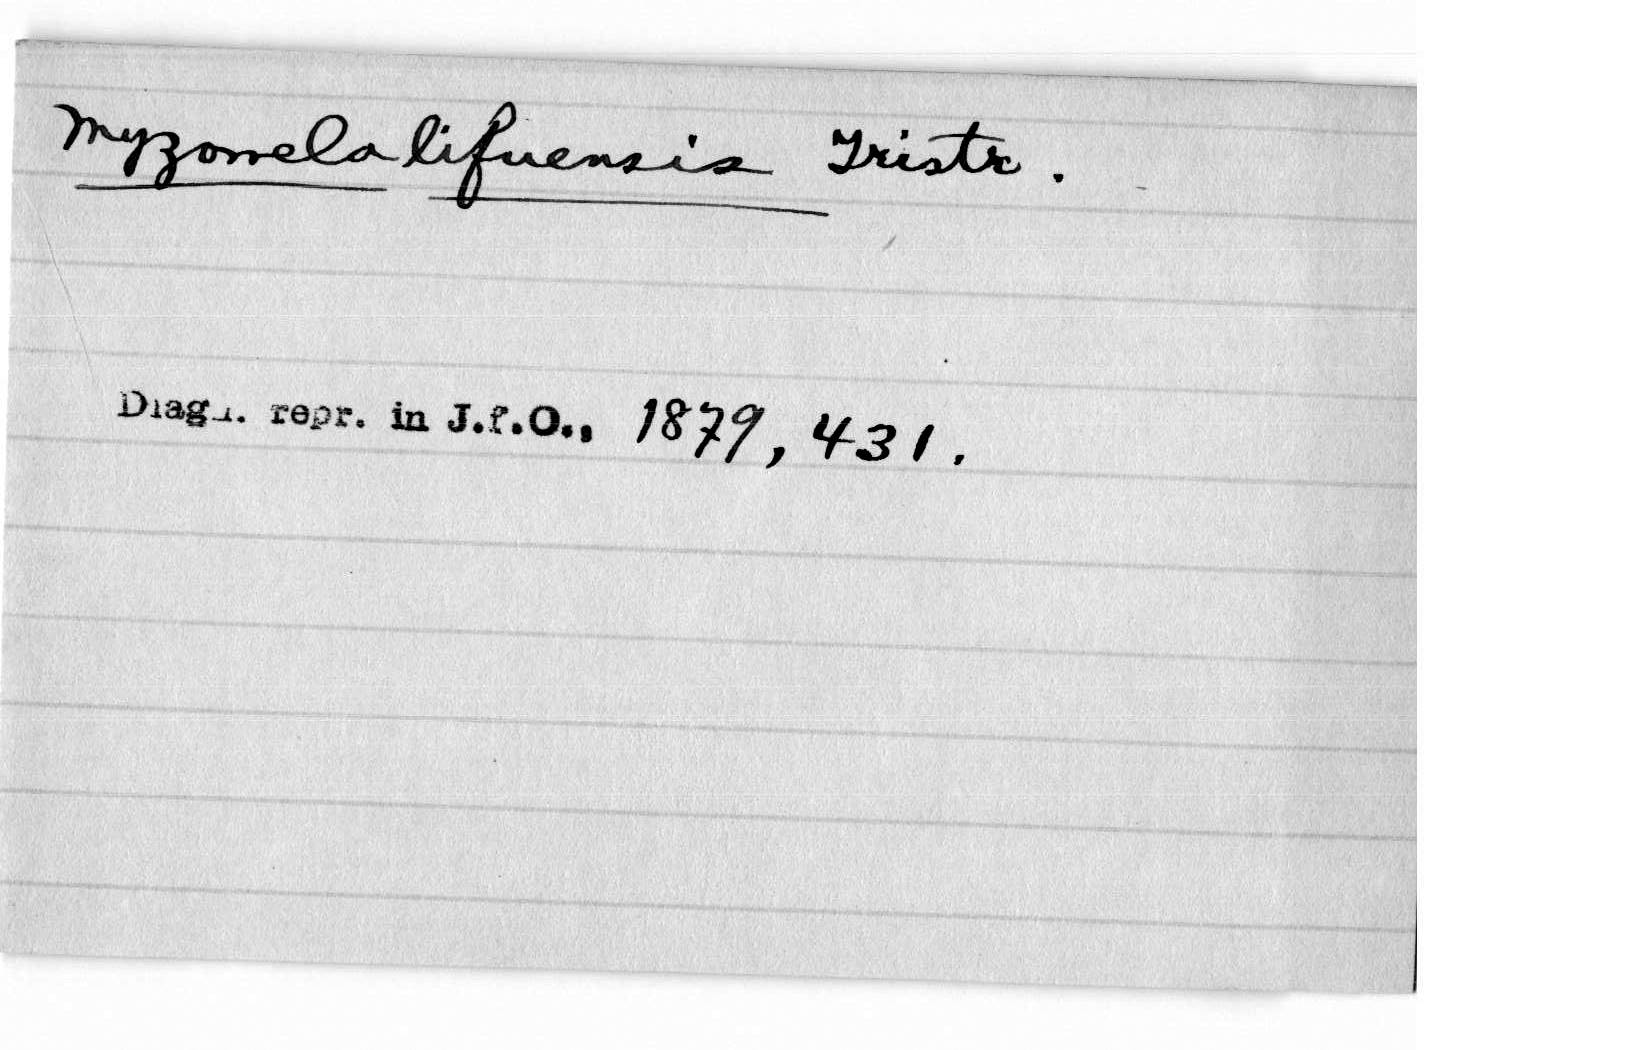 Myzomela lifuensis Tristr.
Diagn. repr. in J.f.O., 1879, 431.